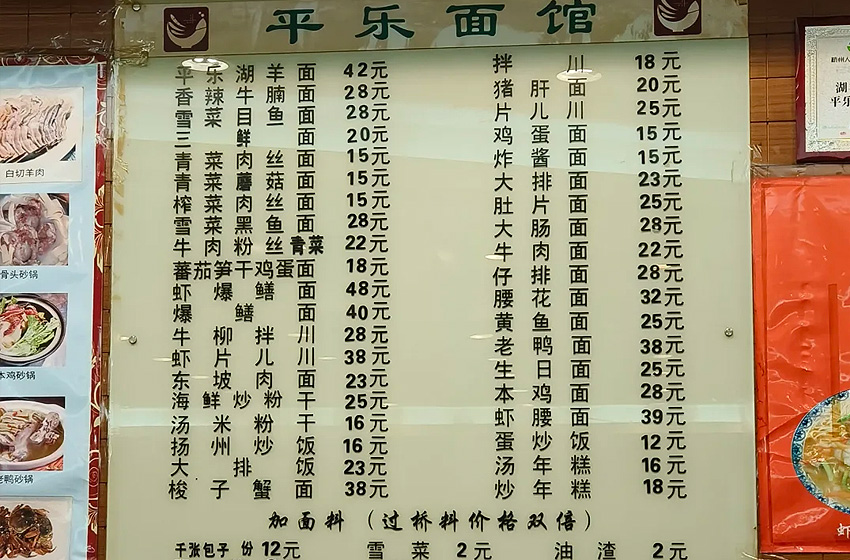 平乐面馆
平乐湖羊面 42元
香辣牛腩面 28元
雪菜目鱼面 28元
三鲜面 20元
青菜肉丝面 15元
青菜蘑菇面 15元
榨菜肉丝面 15元
雪菜黑鱼面 28元
牛肉粉丝青菜 22元
蕃茄笋干鸡蛋面 18元
虾爆鳝面 48元
爆鳝面 40元
牛柳拌川 28元
虾片儿川 38元
东坡肉面 23元
海鲜炒粉干 25元
汤米粉干 16元
扬州炒饭 16元
大排饭 23元
梭子蟹面 38元
拌川 18元
猪肝面 20元
片儿川 25元
鸡蛋面 15元
炸酱面 15元
大排面 23元
肚片面 25元
大肠面 28元
牛肉面 22元
仔排面 28元
腰花面 32元
黄鱼面 25元
老鸭面 38元
生日面 25元
本鸡面 28元
虾腰面 39元
蛋炒饭 12元
汤年糕 16元
炒年糕 18元
加面料（过桥料价格双倍）
千张包子 份 12元 雪菜 2元 油渣 2元
白切羊肉
骨头砂锅
本鸡砂锅
老鸭砂锅
湖
平乐
虾